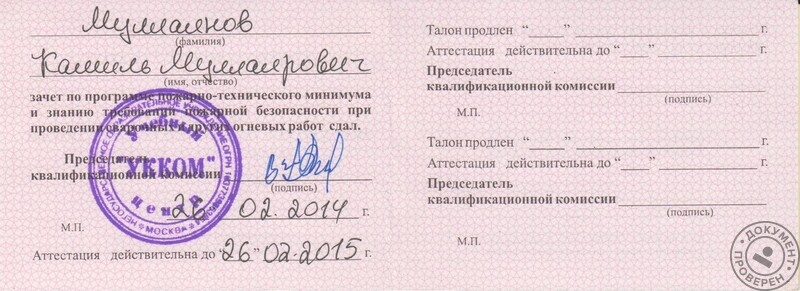 Муллаянов
(фамилия)
Камиль Муллаярович
(имя, отчество)
зачет по программе пожарно-технического минимума
и знанию требований пожарной безопасности при
проведении сварочных и других огневых работ сдал.
Председатель
квалификационной комиссии
(подпись)
26 02. 2014 г.
М.П.
Аттестация действительна до “26” 02. 2015 г.
Учебный
центр
МОСКВА
Талон продлен “____” ____ г.
Аттестация действительна до “____” ____ г.
Председатель
квалификационной комиссии
(подпись)
М.П.
Талон продлен “____” ____ г.
Аттестация действительна до “____” ____ г.
Председатель
квалификационной комиссии
(подпись)
М.П.
ДОКУМЕНТ
ПРОВЕРЕН